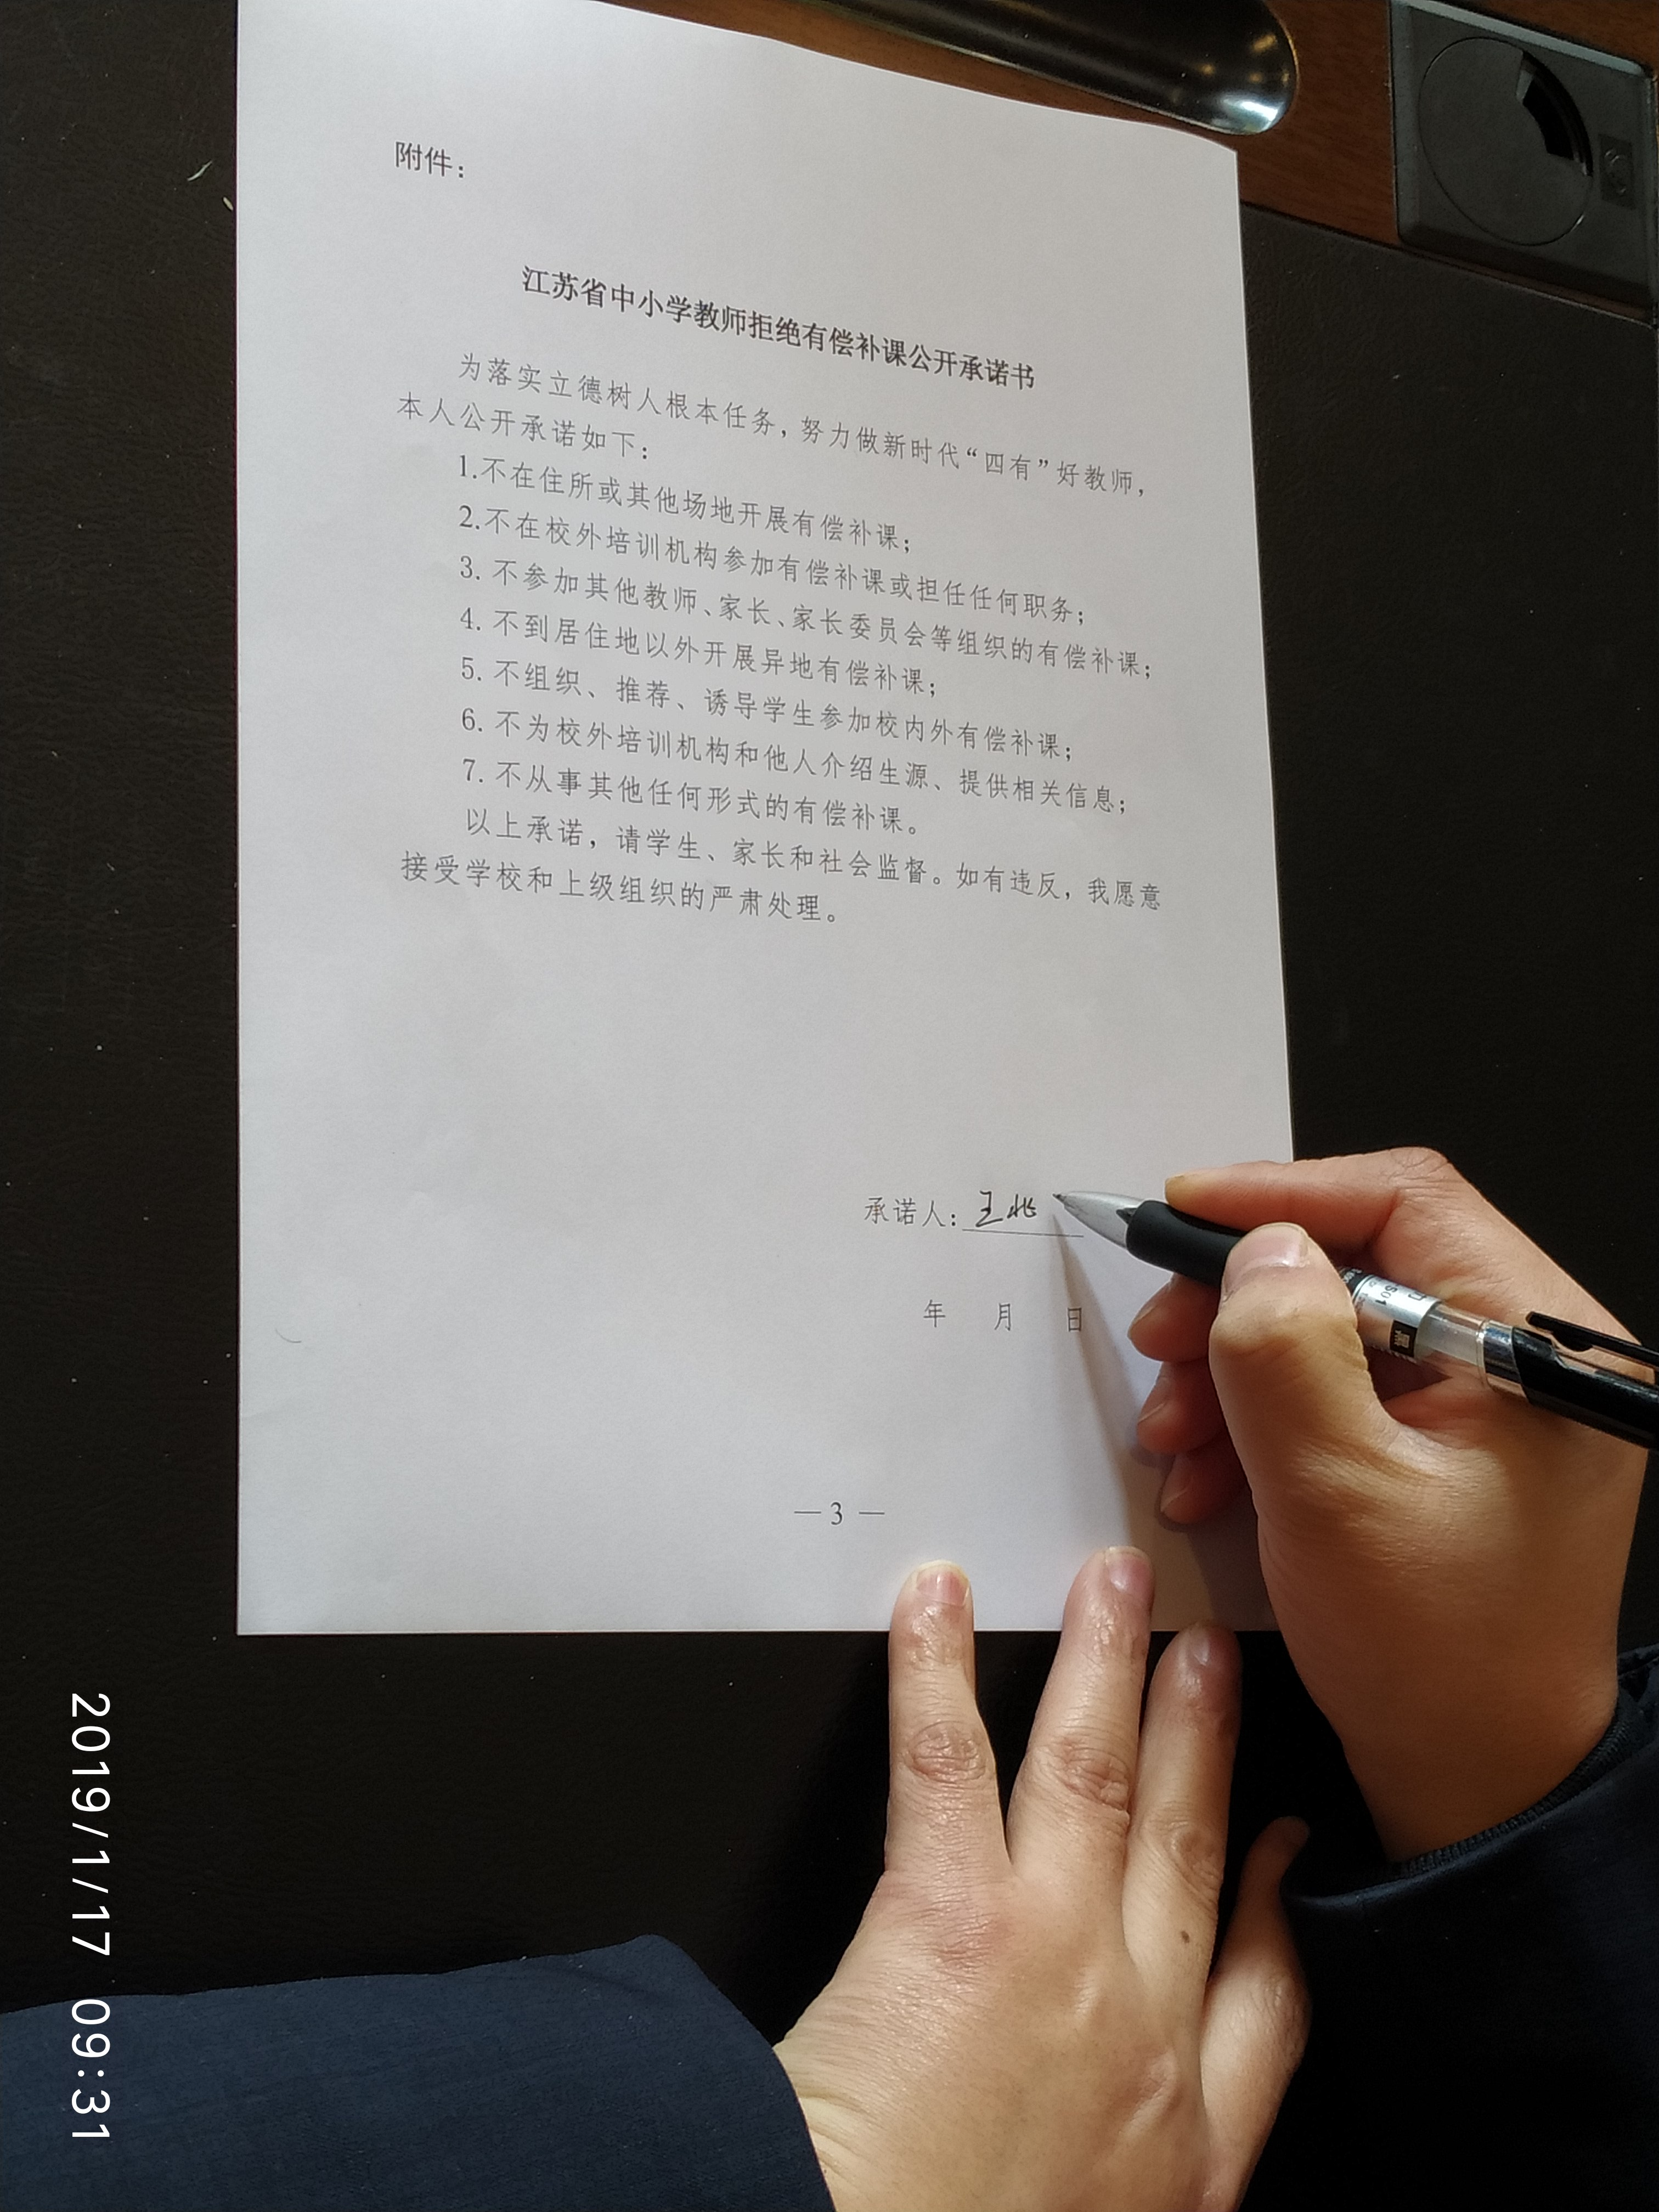 附件：
江苏省中小学教师拒绝有偿补课公开承诺书
为落实立德树人根本任务，努力做新时代“四有”好教师，
本人公开承诺如下：
1.不在住所或其他场地开展有偿补课；
2.不在校外培训机构参加有偿补课或担任任何职务；
3. 不参加其他教师、家长、家长委员会等组织的有偿补课；
4. 不到居住地以外开展异地有偿补课；
5. 不组织、推荐、诱导学生参加校内外有偿补课；
6. 不为校外培训机构和他人介绍生源、提供相关信息；
7. 不从事其他任何形式的有偿补课。
以上承诺，请学生、家长和社会监督。如有违反，我愿意
接受学校和上级组织的严肃处理。
承诺人：王兆
年 月 日
— 3 —
2019/1/17 09:31